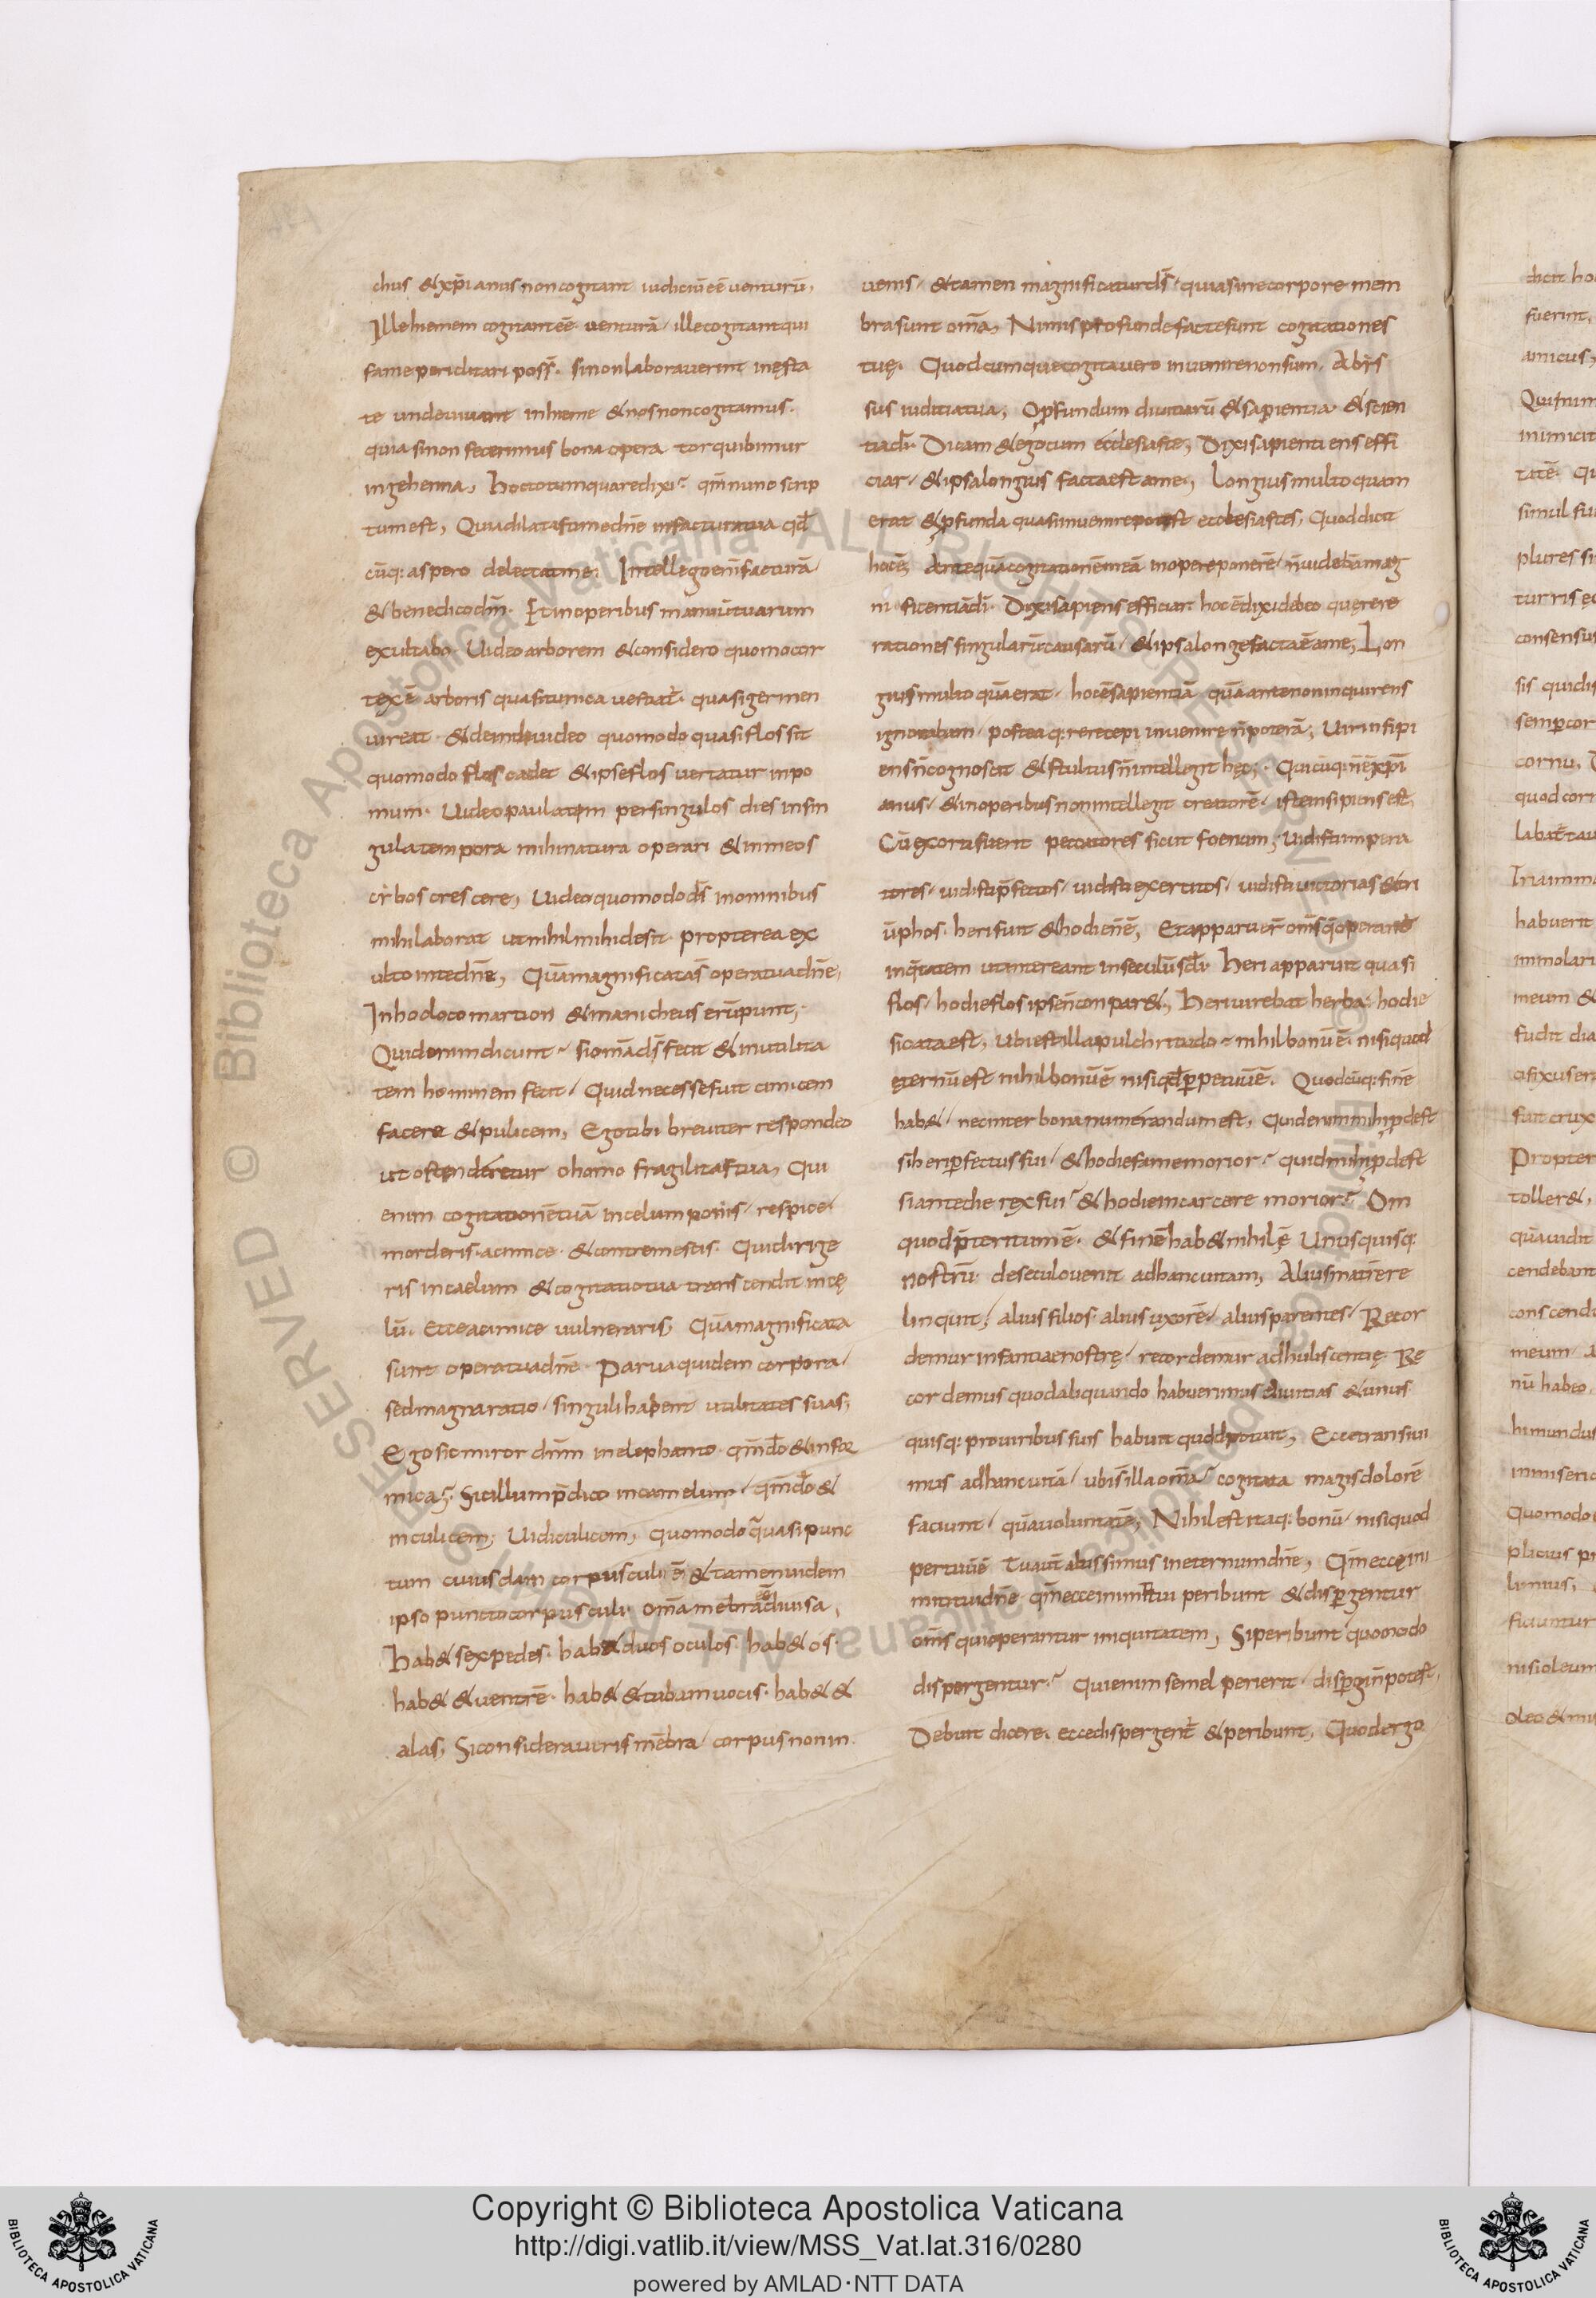 chus &xp̄ianus noncogitant iudiciū eē venturū,
Ille hiemem cogitant eē venturā ille cogitant qui
fame periclitari poss̄. sinonlaboraverint inęsta
te unde uiuant inhieme &nosnoncogitamus.
quia sinon fecerimus bona opera torquibimur
ingehenna, Hoctotumquaredixi? qm̄nunc scrip
tum est, Quiadilatastimedn̄e infacturatua qd̄
cūq: aspero delectatme. Intellegoenī facturā
&benedicodn̄. Etinoperibus manuūtuarum
exultabo. Uideo arborem &considero quomocor
texē arboris quasitunica vestiat̄. quasigermen
uireat &deindeuideo quomodo quasi flossit
quomodo flos cadet &ipseflos vertatur inpo
mum. Uideo paulatem persingulos dies insin
gulatempora mihinatura operari &inmeos
cibos crescere, Uideoquomodods̄ inomnibus
mihilaborat utnihilmihidesit. propterea ex
ulto intedn̄e, Quāmagnificatas̄ operatuadn̄e,
Inhocloco martion &manicheus erūpunt,
Quidenimdicunt siom̄ads̄ fecit &inutilita
tem hominem fecit Quid necessefuit cimicem
facere &pulicem, Egotibi breuiter respondeo
ut ostenderetur ohomo fragilitastua, Qui
enim cogitationētuā incelum ponis respice
morderis.acimice.&contremescis. Quidirige
ris incaelum &cogitatiotua transcendit incę
lū. Ecceacimice uulneraris, Quāmagnificata
sunt operatuadn̄e. Paruaquidem corpora
sedmagnaratio singulihabent utilitates suas,
Egosicmiror dn̄m inelephanto qm̄do &infor
mica. Sicillump̄dico incamelum qm̄do &
inculicem, Uidiculicem, Quomodo quasi punc
tum cuiusdam corpusculi ē &tamen inidem
ipso punctocorpusculi om̄a mēbra s̄ diuisa,
Hab& sexpedes. hab& duos oculos hab& os.
hab& &ventrē. hab& &tubamuocis. hab& &
alas, Siconsiderauiris mēbra corpusnonin
venis &tamen magnificaturds̄ quiasinecorpore mem
brasunt om̄a, Nimisprofundefactesunt cogitationes
tuę. Quodcumquecogitavero invenirenonsum. Abys
sus iuditiatua, Oprofundum divitiarū &sapientia &scien
tiad̄i. Dicam &egocum ecclesiaste, Dixisapienti ens effi
ciar &ipsalongius factaest ame, Longiusmultoquam
erat &profunda quasinuenirepotest ecclesiastes, Quoddicit
hocē, Antequācogitationēmeā inopereponerē n̄uidebāmag
nificentiād̄i. Dixisapiens efficiar. hocēdixidebeo quęrere
rationes singularūcausarū &ipsalongefactaēame, Lon
giusmulto quāerat hocēsapientiā quāantenoninquirens
ignorabam posteaq: rerecepi invenire n̄poterā, Uirinsipi
ensn̄cognoscit &stultusn̄intellegit hęc, Quicūq: n̄ēxpī
anus &inoperibusnonintellegit creatorē isteinsipiensest,
Cūexortifuerit peccatores sicut foenum, Uidistiimpera
tores uidistip̄fectos uidistiexercitos uidistiuictorias &tri
ūphos. herifuit &hodien̄ē, Etapparuer̄ om̄s quioperant̄
iniq̄tatem utintereant inseculūsc̄li. Heri apparuit quasi
flos hodieflos ipsen̄conpar&, Heriuirebat herba hodie
siccataest, Ubiestillapulchritudo nihilbonūē. nisiquod
ęternū est nihilbonūē nisiqd̄perpetuūē. Quodcūq: finē
hab& necinter bonanumerandumest, Quidenimmihiprodest
siheriperfectusfui &hodiefamemorior? quidmihiprodest
siantedie rexfui &hodieincarcere morior? Om
quodp̄teritumē. &finēhab&nihilē Unusquisq:
nostrū desęculouenit adhancuitam, Aliusmatrēre
linquit, alius filios alius uxorē aliusparentes Recor
demur infantiaenostrę recordemur adhuliscentię Re
cordemus quodaliquando habuerimus diuitias &unus
quisq: prouiribus suis habuit quodpotuit, Eccetransiui
mus adhancuitā ubis̄illaom̄a? cogitata magisdolorē
faciunt quāvoluntatē, Nihilestitaq: bonū nisiquod
pertuūē Tuaūt altissimus ineternumdn̄e, Qm̄ecceini
micituidn̄e qm̄ecceinimicitui peribunt &dispergentur
om̄s quioperantur iniquitatem, Siperibunt quomodo
dispergentur? Quienimsemel perierit dispergin̄potest,
Debuit dicere. eccedispergent̄ &peribunt, Quodergo
Copyright © Biblioteca Apostolica Vaticana
http://digi.vatlib.it/view/MSS_Vat.lat.316/0280
powered by AMLAD·NTT DATA
BIBLIOTECA APOSTOLICA VATICANA
BIBLIOTECA APOSTOLICA VATICANA